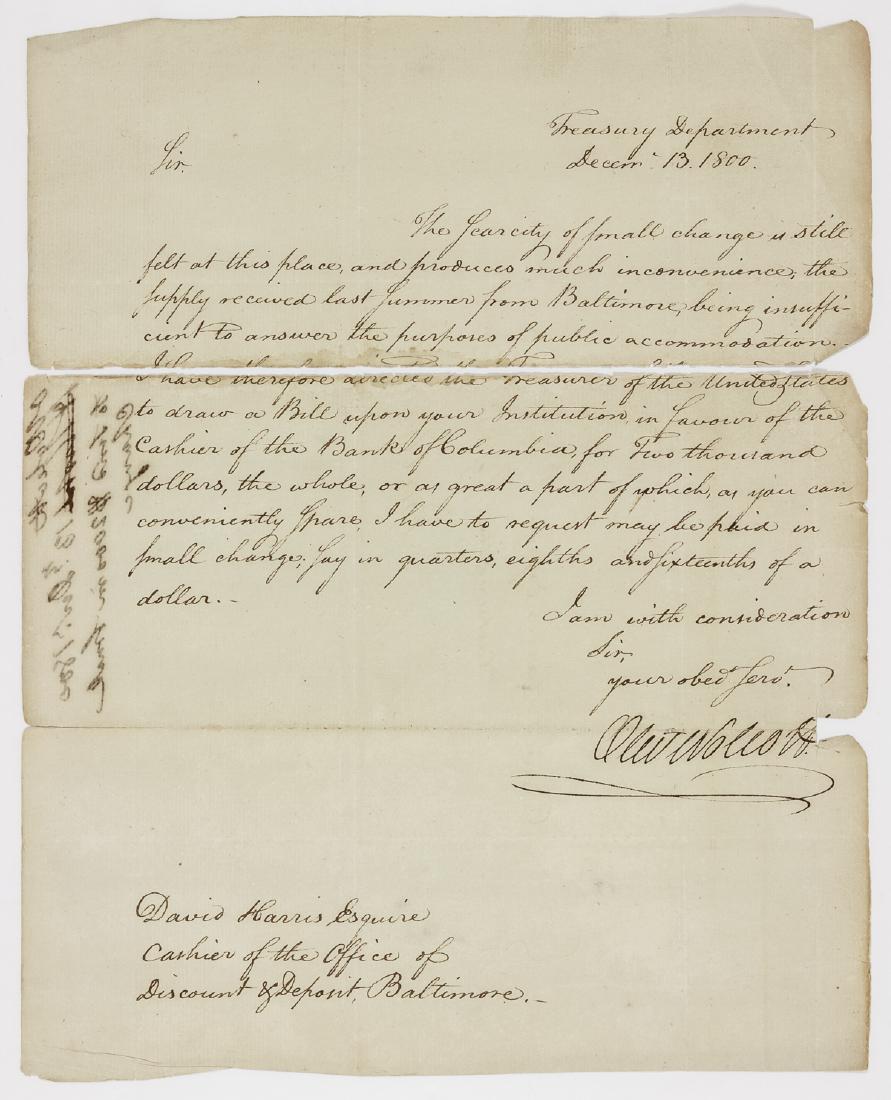 Treasury Department
Decem.r 13. 1800.
Sir.
The Scarcity of small change is still
felt at this place, and produces much inconvenience, the
supply received last Summer from Baltimore, being insuffi-
cient to answer the purposes of public accommodation. -
I have therefore directed the Treasurer of the United States
to draw a Bill upon your Institution, in favour of the
Cashier of the Bank of Columbia, for Two thousand
dollars, the whole, or as great a part of which, as you can
conveniently spare, I have to request may be paid in
small change; say in quarters, eighths and sixteenths of a
dollar. -
I am with consideration
Sir,
your obed.t Serv.t
Oliv Wolcott.
David Harris Esquire
Cashier of the Office of
Discount & Deposit, Baltimore. -